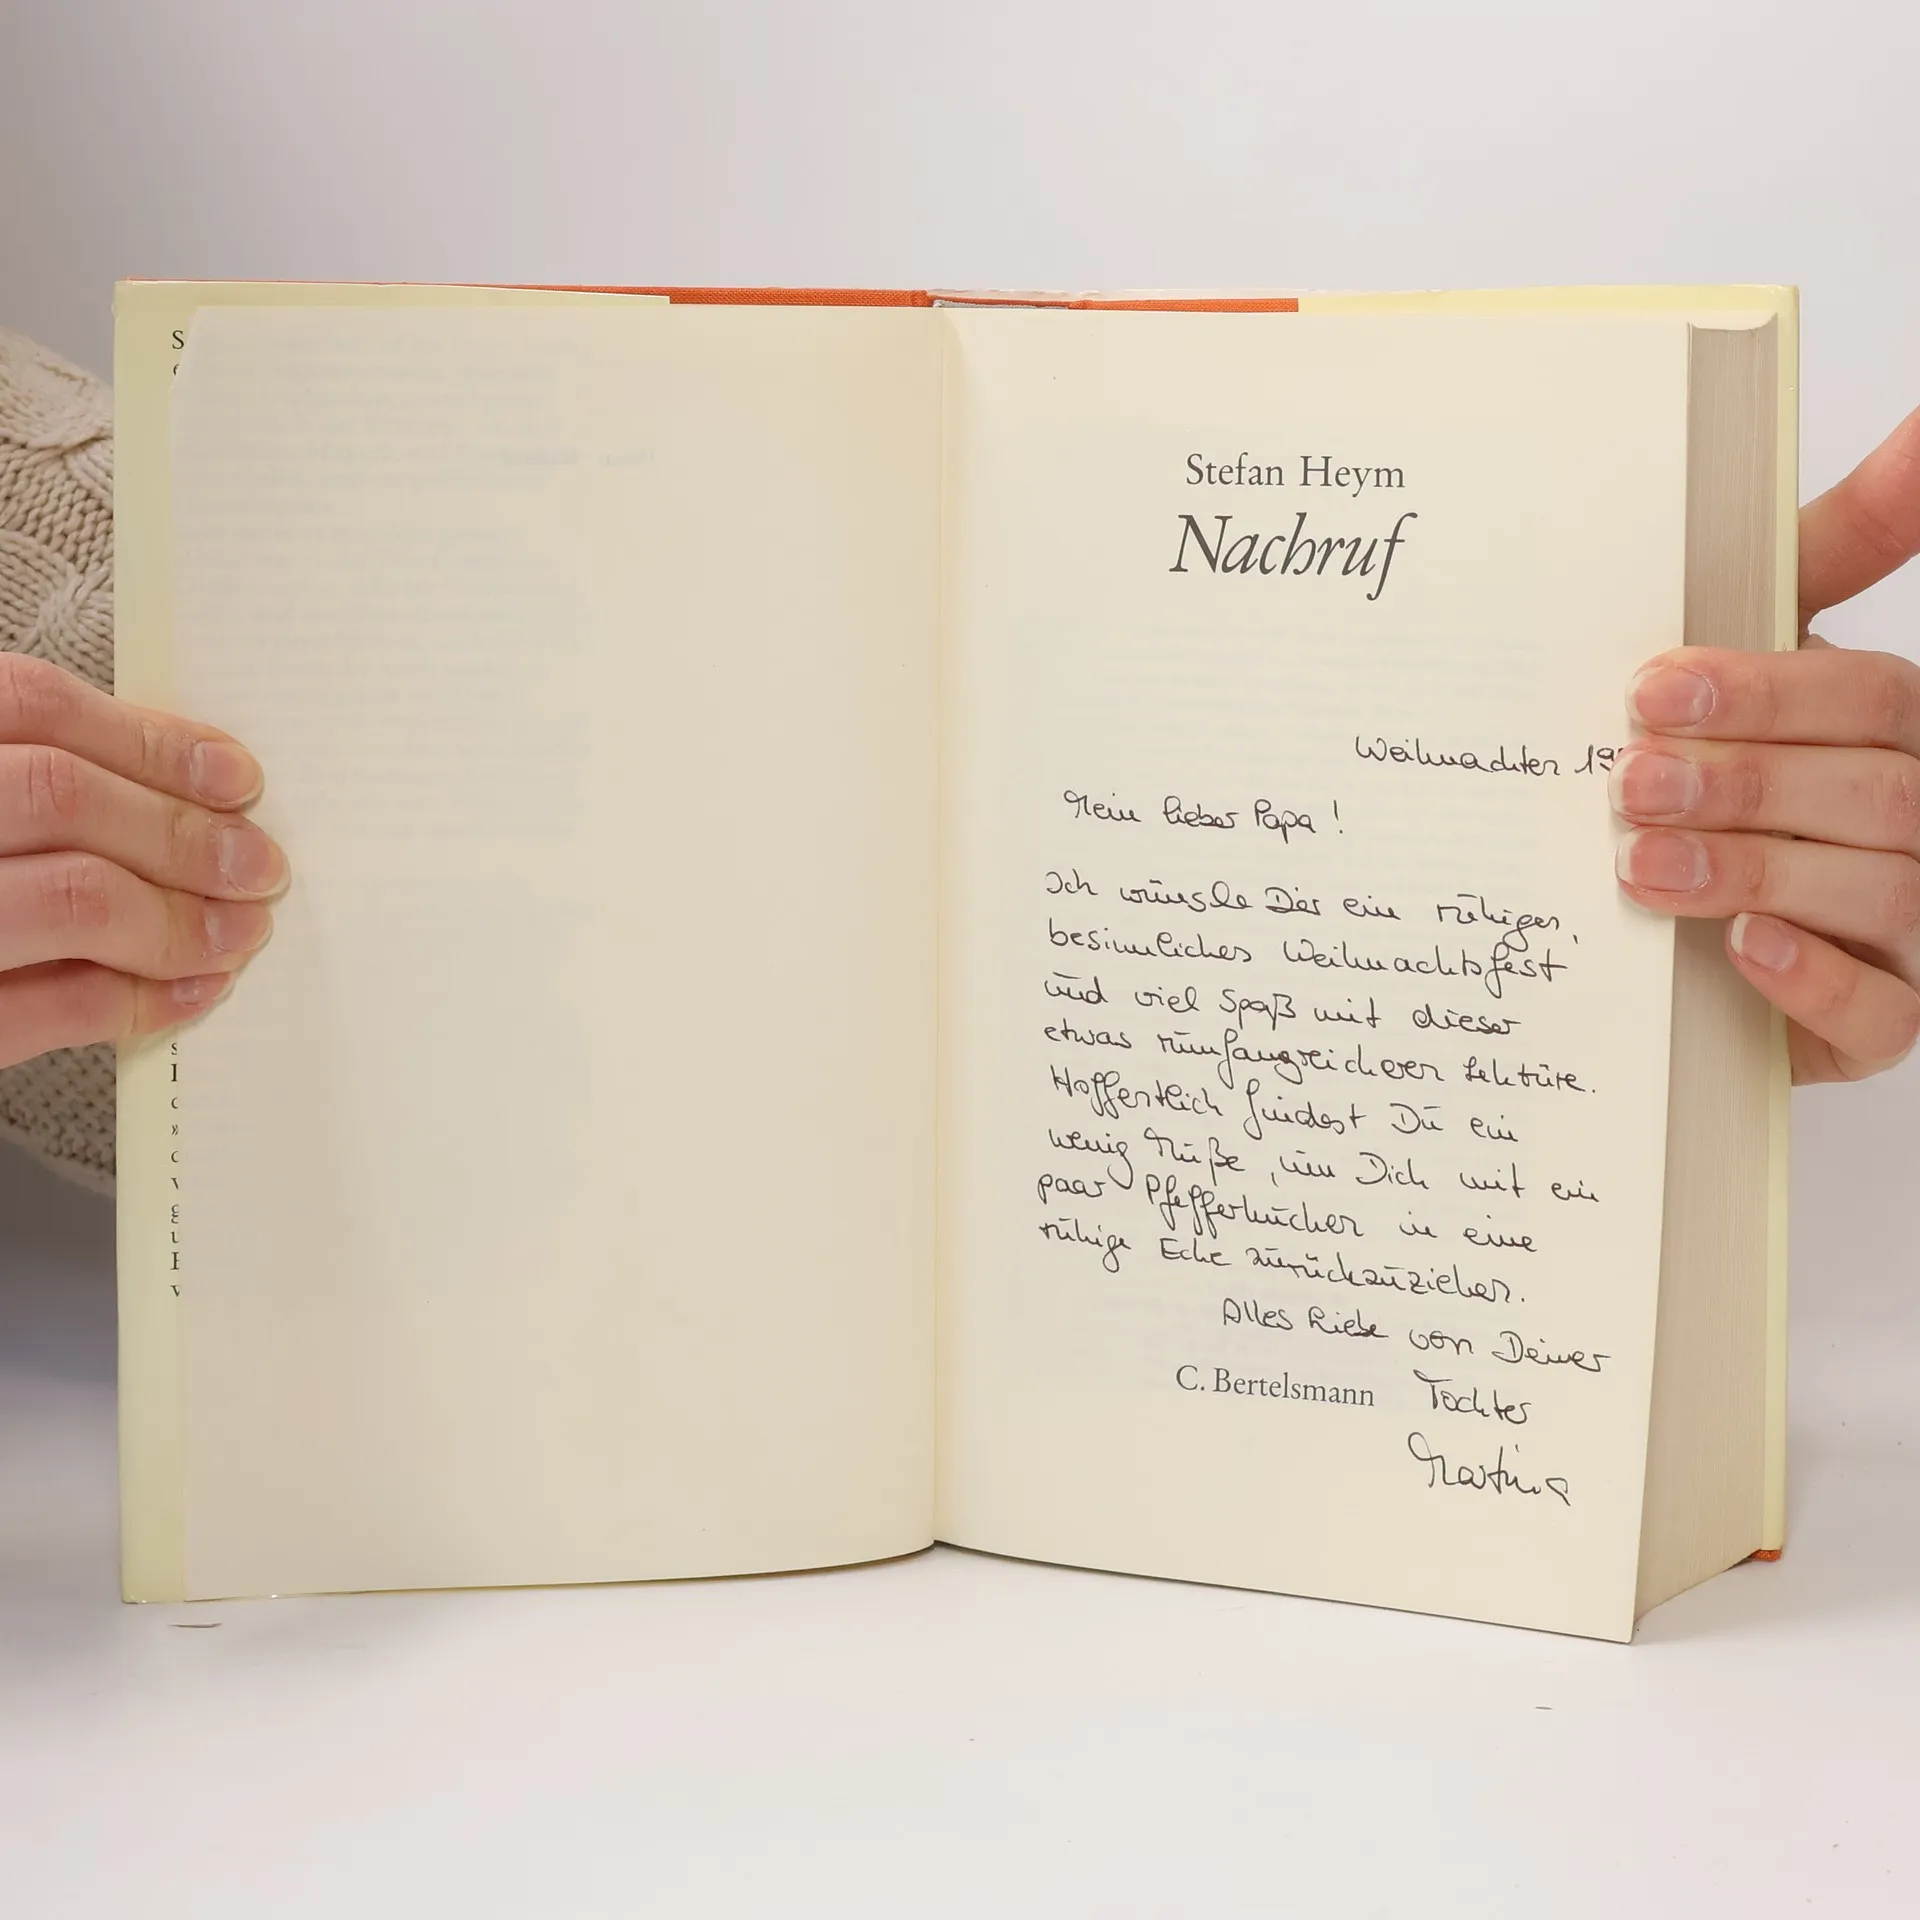 S
e
s
I
d
»
d
v
g
u
E
v
Stefan Heym
Nachruf
Weihnachten 19
Mein lieber Papa !
Ich wünsche Dir ein ruhiges,
besinnliches Weihnachtsfest
und viel Spaß mit dieser
etwas umfangreicheren Lektüre.
Hoffentlich findest Du ein
wenig Muße, um Dich mit ein
paar Pfefferkuchen in eine
ruhige Ecke zurückzuziehen.
Alles Liebe von Deiner
C. Bertelsmann Tochter
Martina